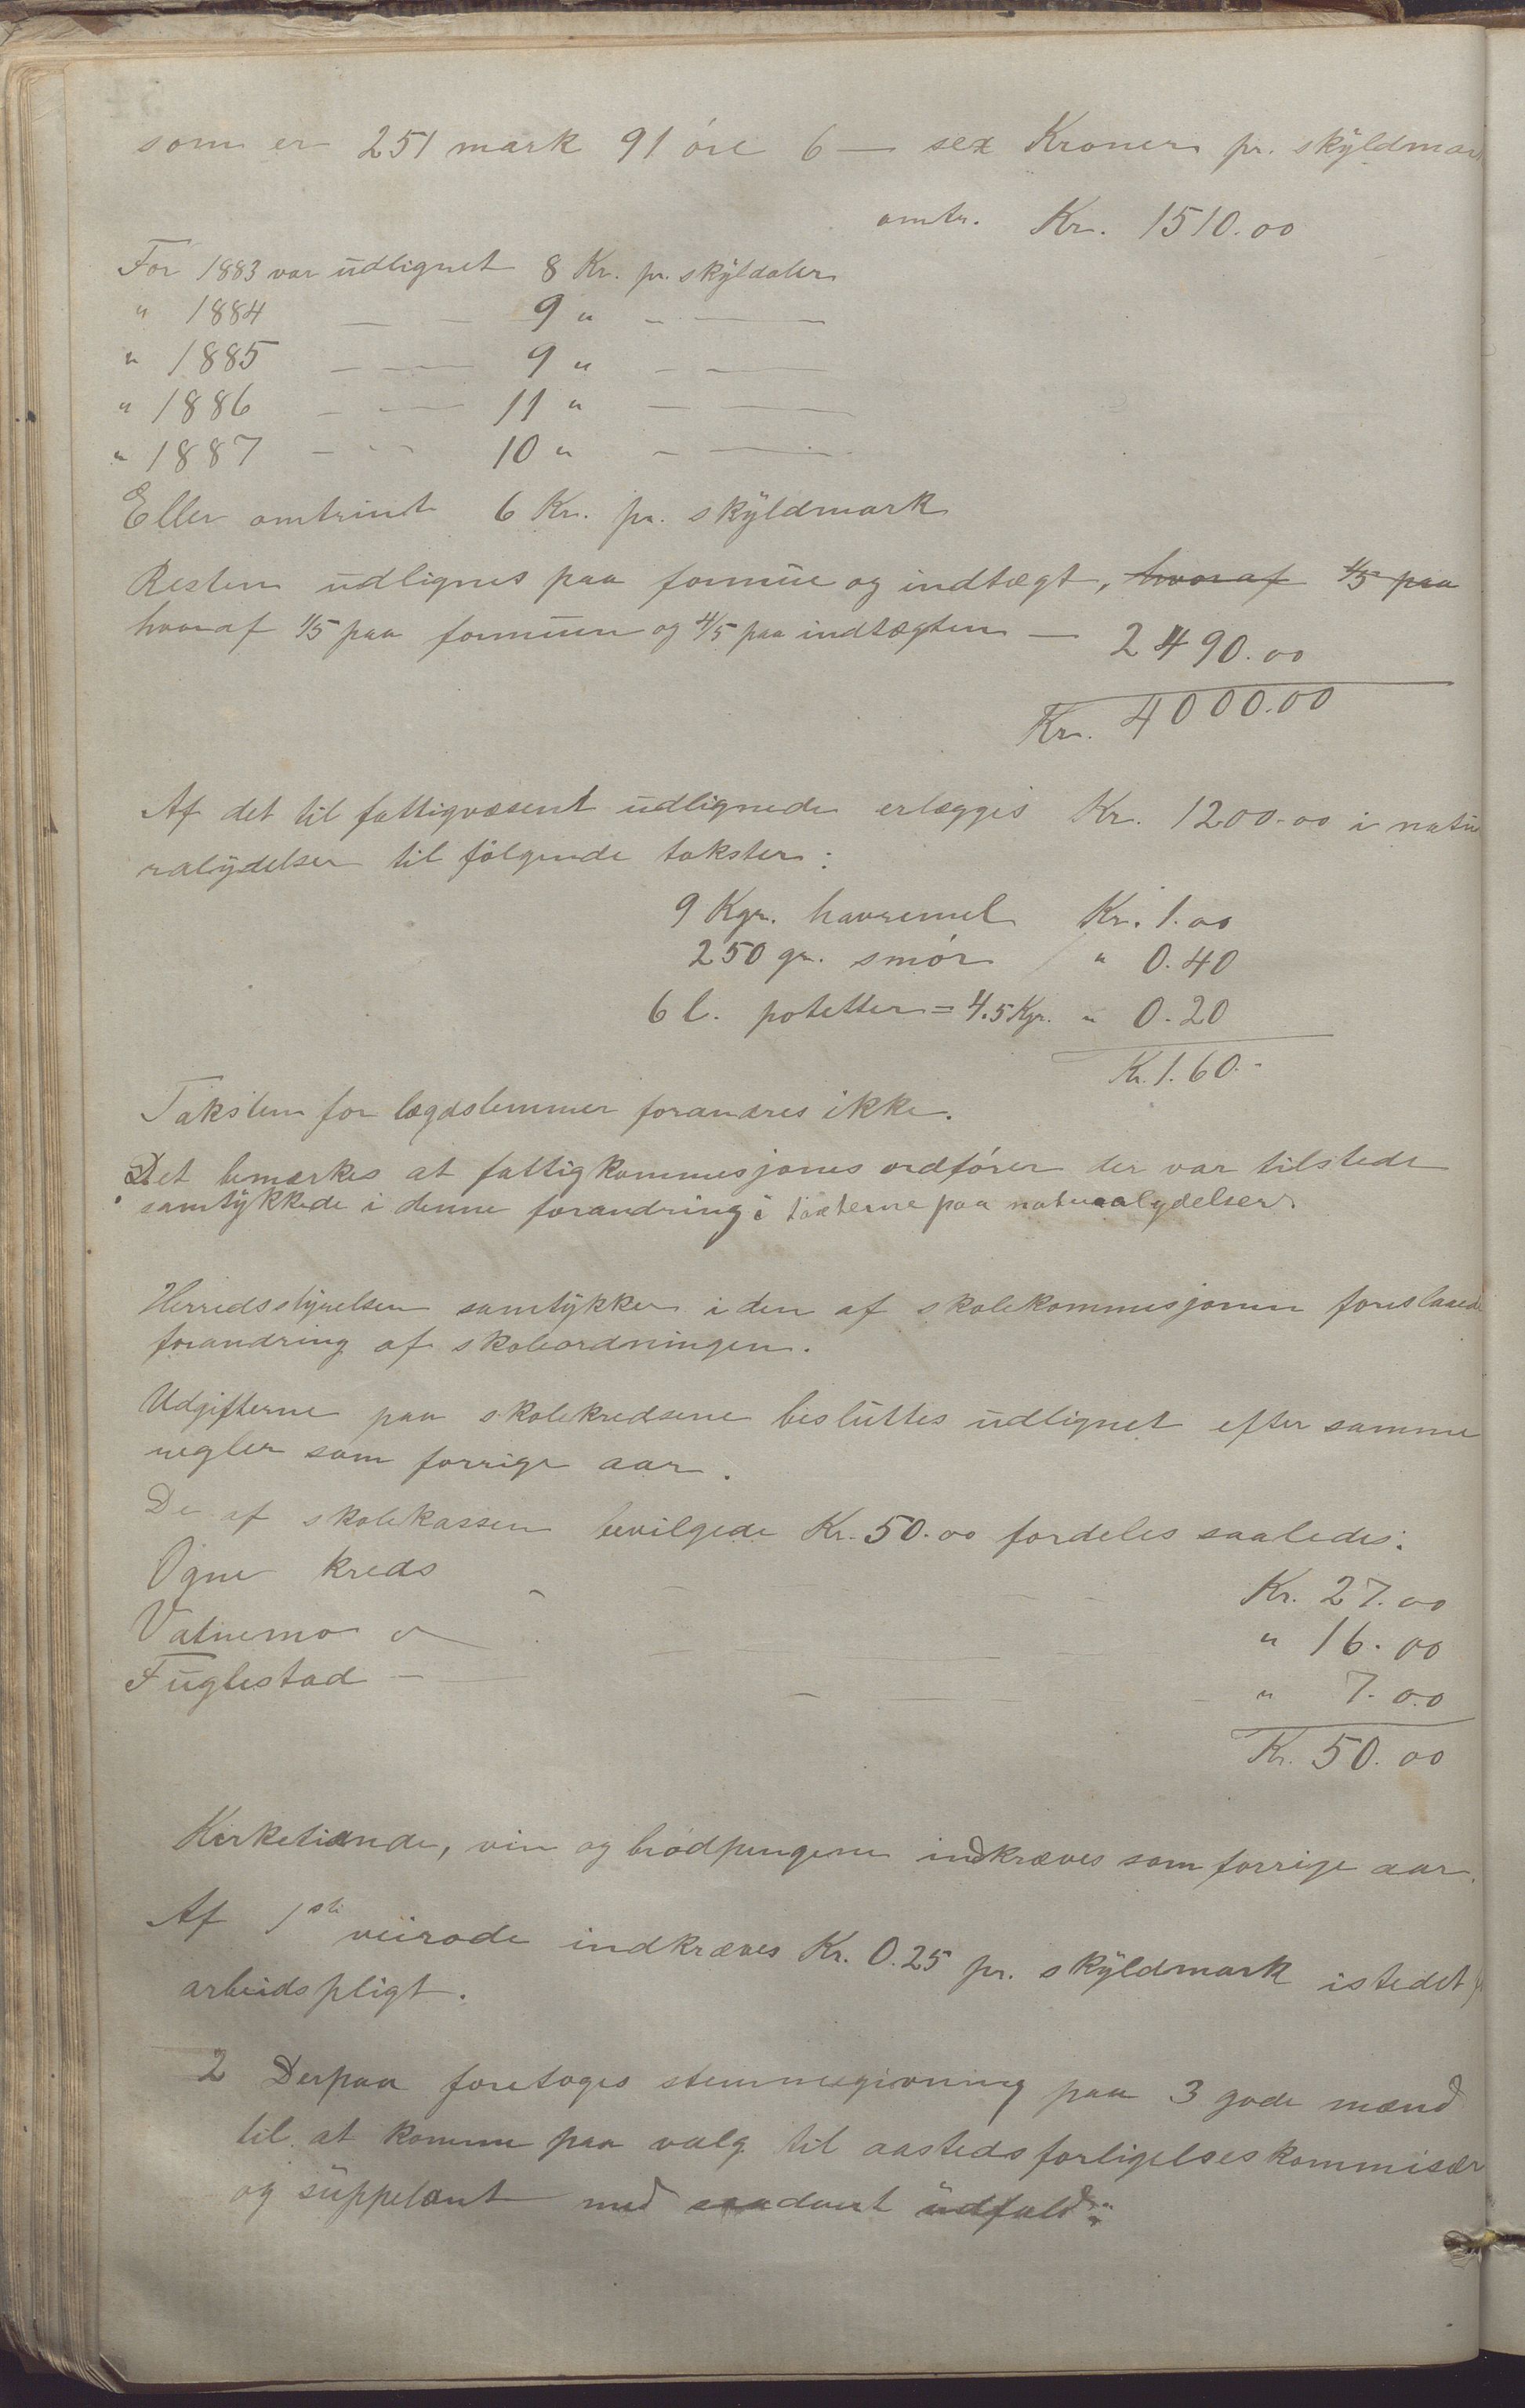 som er 251 mark 91 øre 6 — sex Kroner pr. skÿldmark
omtr. Kr. 1510.00
For 1883 var udlignet 8 Kr. pr. skÿldaler
" 1884 — — 9 " — —
" 1885 — — 9 " — —
" 1886 — — 11 " — —
" 1887 — — 10 " — —
Eller omtrint 6 Kr. pr. skÿldmark
Resten udlignes paa formue og indtægt, hvoraf 4/5 paa
hvoraf 1/5 paa formuen og 4/5 paa indtægten — 2490.00
Kr. 4000.00
Af det til fattigvæsent udlignede erlægges Kr. 1200.00 i natu
ralÿdelser til følgende takster:
9 Kgr. havremel Kr. 1.00
250 gr. smør " 0.40
6 l. potetter = 4.5 Kgr. " 0.20
Kr. 1.60.-
Taksten for lægdslemmer forandres ikke.
Det bemærkes at fattigkommesjones ordfører der var tilstede
samtÿkkede i denne forandring i taxterne paa naturalydelser.
Herredsstÿrelsen samtÿkker i den af skolekommesjonen foreslaaede
forandring af skoleordningen.
Udgifterne paa skolekredsene besluttes udlignet efter samme
regler som forrige aar.
De af skolekassen bevilgede Kr. 50.00 fordeles saaledes:
Ogne kreds Kr. 27.00
Vatnemo " " 16.00
Fuglestad — " 7.00
Kr. 50.00
Kirketiende, vin og brødpengene indkræves som forrige aar.
Af 1ste veirode indkræves Kr. 0.25 pr. skÿldmark istedet f
arbeidspligt.
2 Derpaa foretoges stemmegivning paa 3 gode mænd
til at komme paa valg til aastedsforligelseskommisær
og suppelant med saadant udfald: